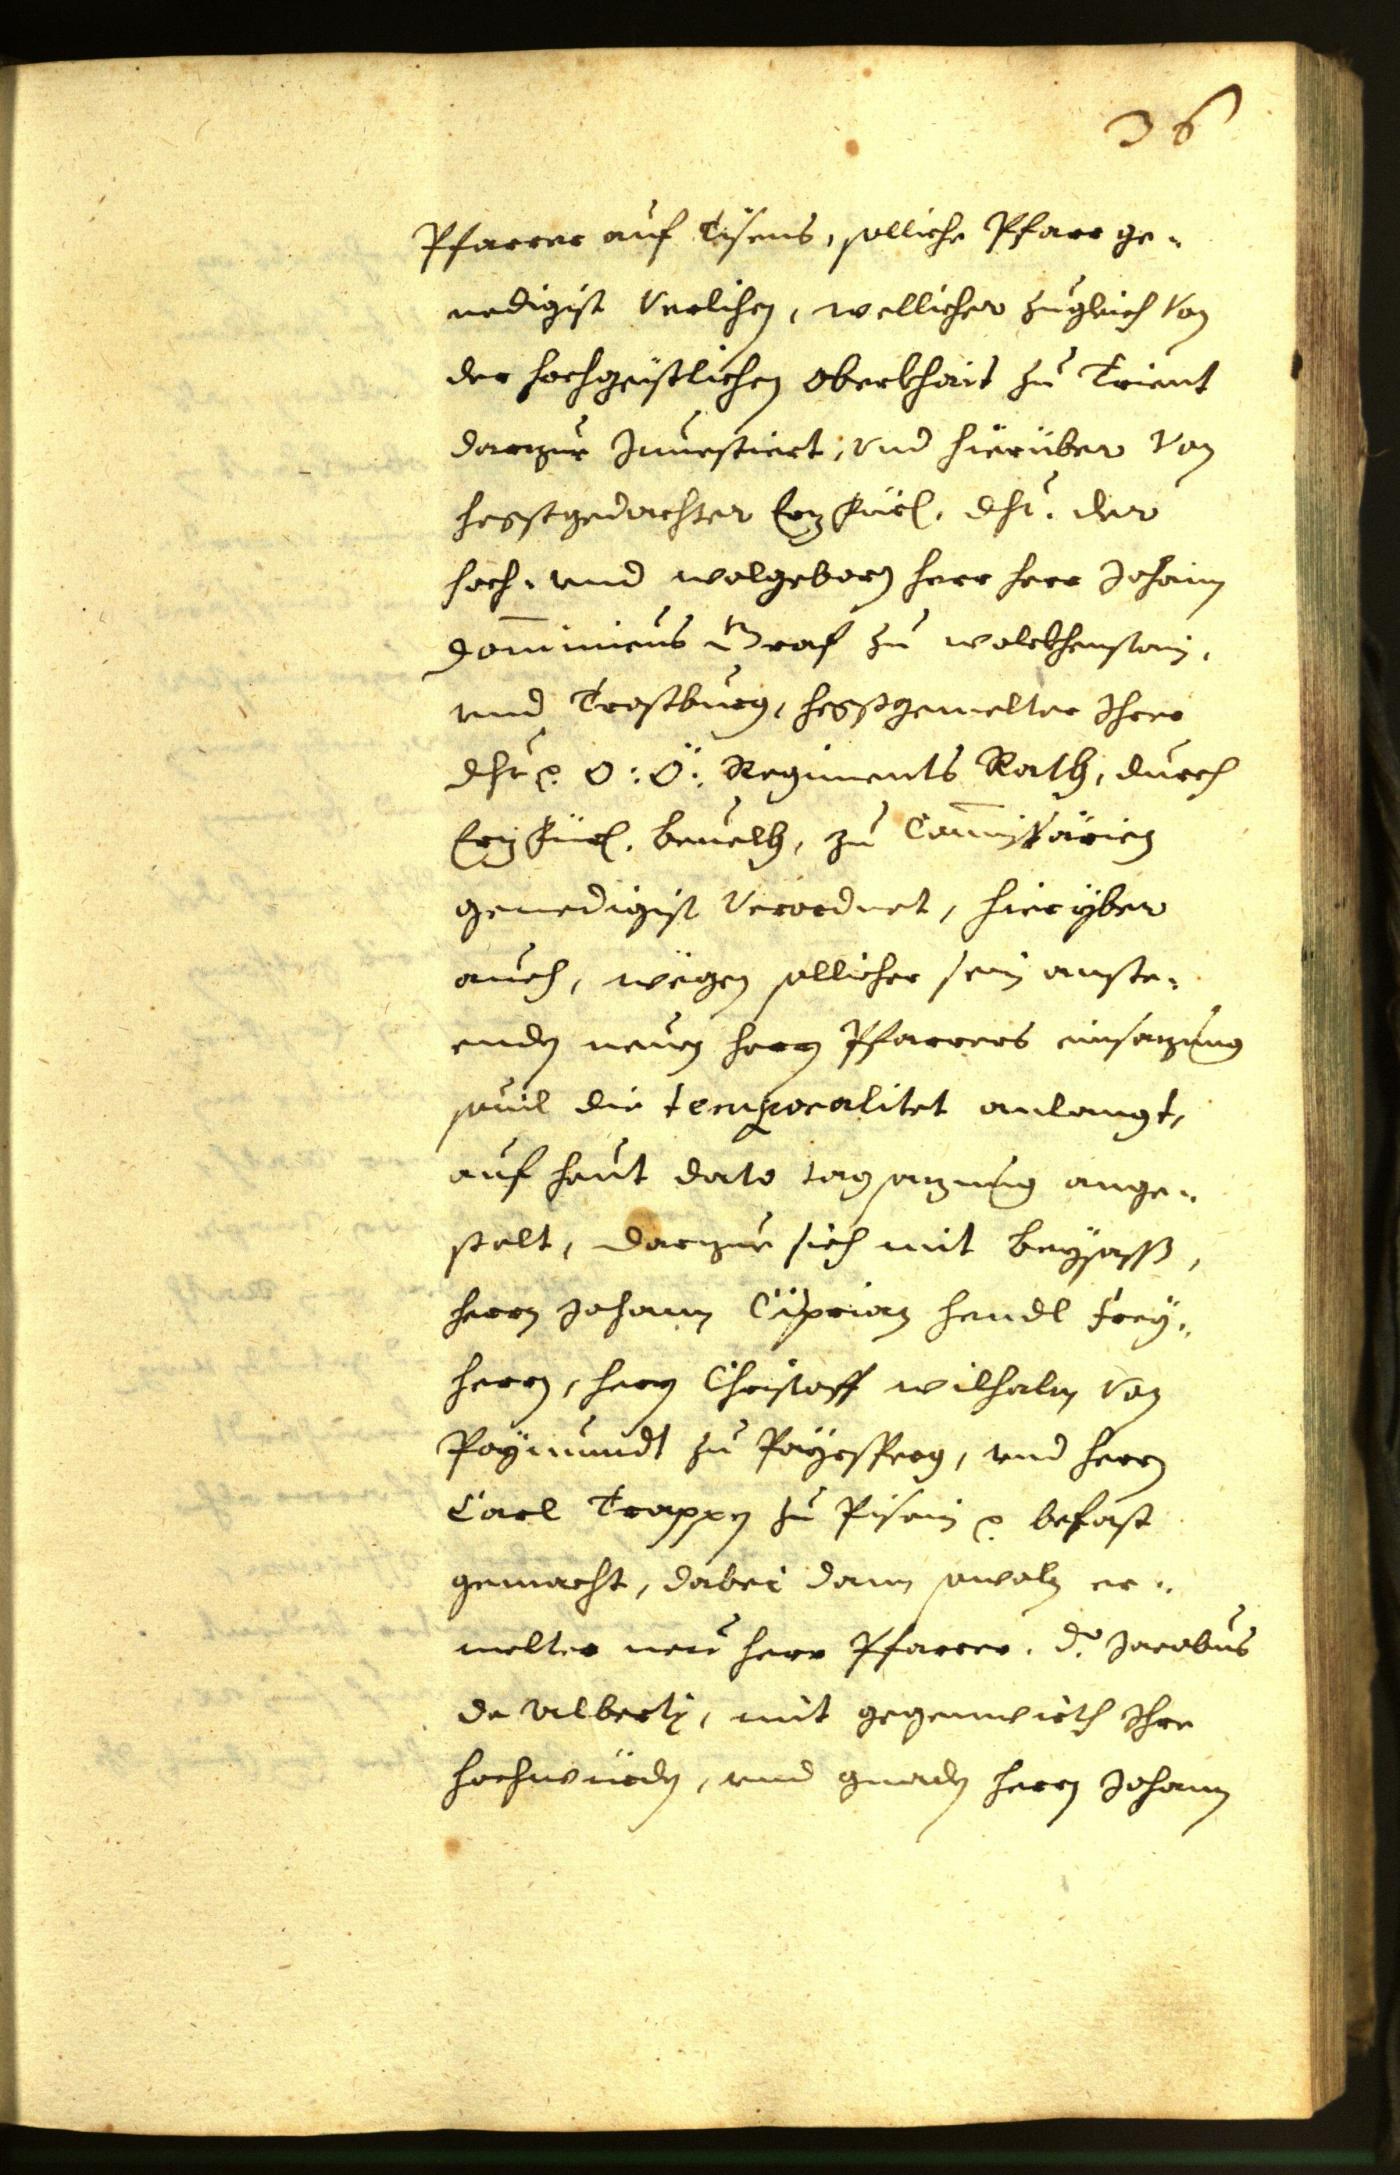 36
Pfarrer auf Tisens, solliche Pfarr ge-
nedigist Verlihen, wellicher zugleich Von
der hochgeistlichen Oberkhait zu Trient
darzue Inuestiert, Vnd hierüber Von
hegstgedachter Erzfürl. Dht. der
hoch- vnd wolgeborn herr herr Johann
Dominicus Graf zu wolckhenstain,
vnd Trostburg, hegstgemelter Ihrer
Dht. O: Ö: Regiments Rath, durch
Erzfürl. beuelh, zu Commissärien
genedigist Verordnet, hieryber
auch, wegen sollicher sein anste-
enden neuen herrn Pfarrers einsazung
souil die temporalitet anlangt,
auf heut dato tagsazung ange-
stelt, darzue sich mit beysäss,
herrn Johann Ciprian hendl Frey-
herrn, herrn Christoff wilhalm Von
Paymundt zu Payrsperg, vnd herrn
Carl Trappen zu Pisein befast
gemacht, dabei dann sowoln er-
melter neu herr Pfarrer. D. Jacobus
de Alberti, mit gegenwirth Ihre
hochwürden, vnd gnaden herrn Johann